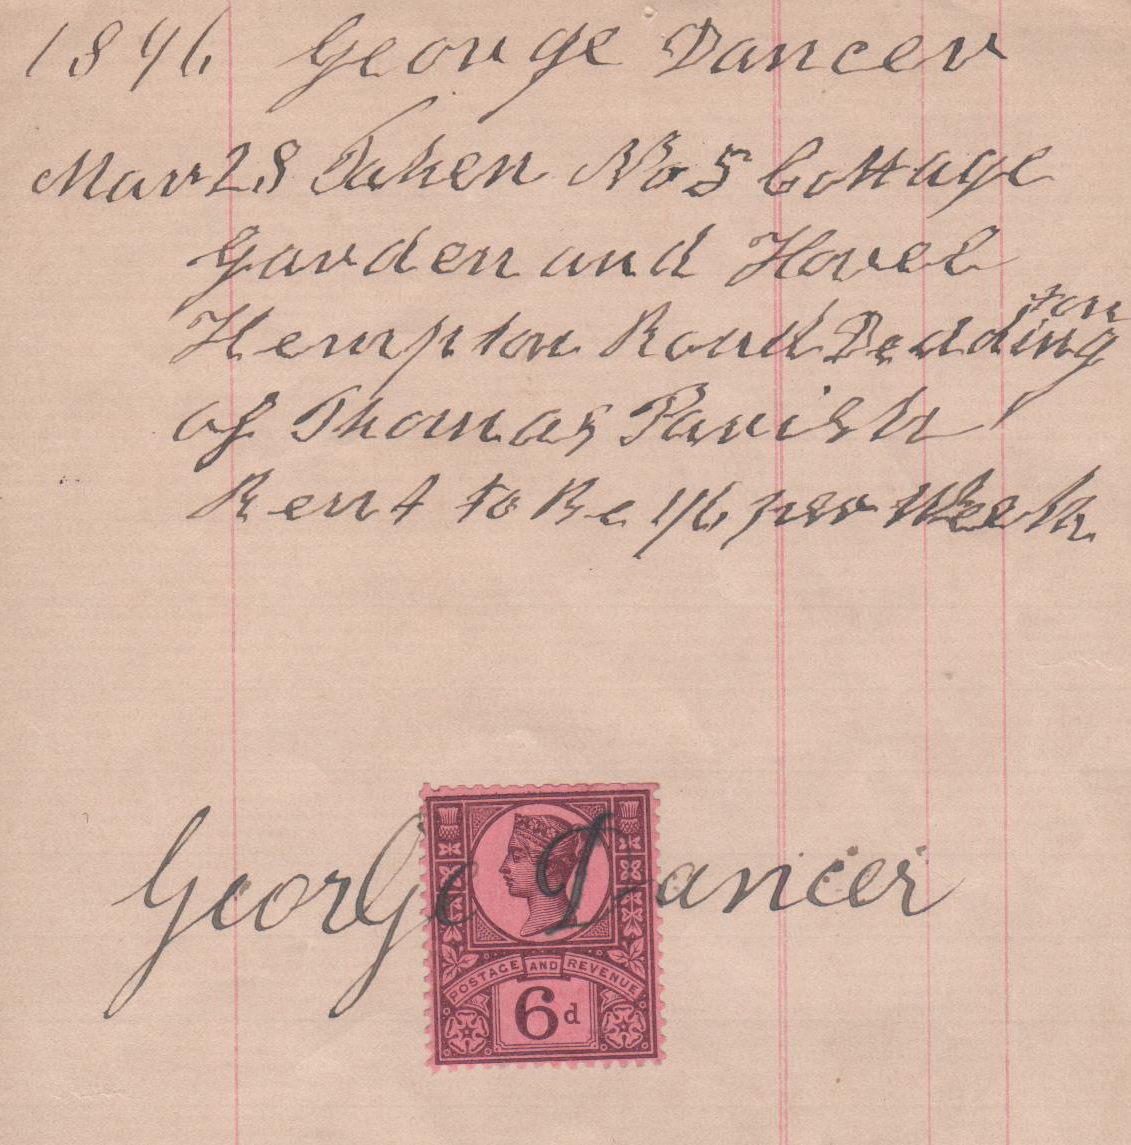 1896 George Dancer
Mar 28 Taken No 5 Cottage
Garden and Hovel
Hempton Road Deddington
of Thomas Parish
Rent to Be 1/6 per Week
George Dancer
POSTAGE AND REVENUE
6d